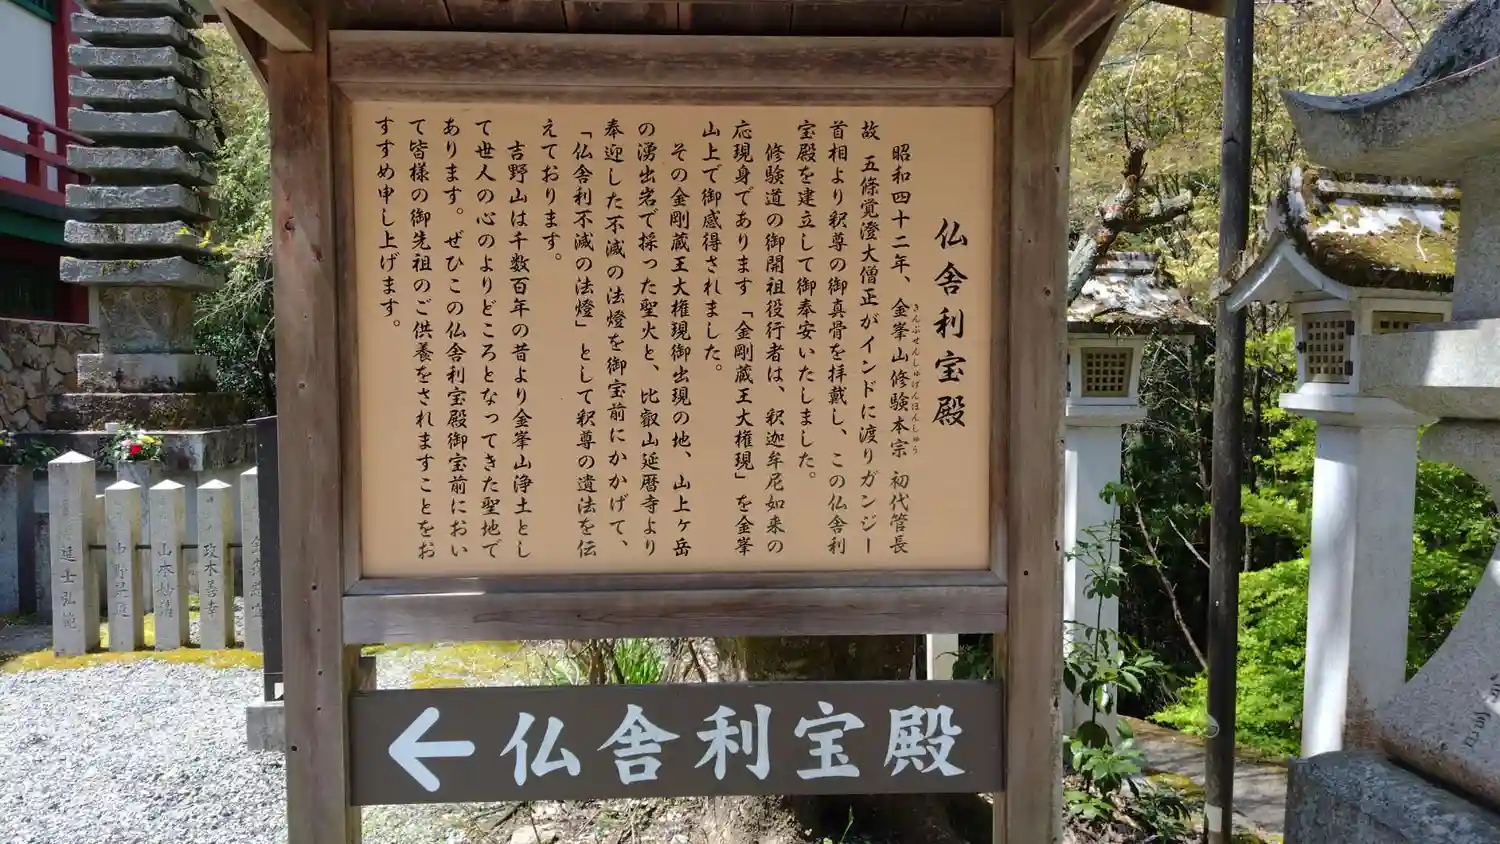 仏舎利宝殿
昭和四十二年、金峯山修験本宗 初代管長
きんぷせんしゅげんほんしゅう
故 五條覚澄大僧正がインドに渡りガンジー
首相より釈尊の御真骨を拝戴し、この仏舎利
宝殿を建立して御奉安いたしました。
修験道の御開祖役行者は、釈迦牟尼如来の
応現身であります「金剛蔵王大権現」を金峯
山上で御感得されました。
その金剛蔵王大権現御出現の地、山上ヶ岳
の湧出岩で採った聖火と、比叡山延暦寺より
奉迎した不滅の法燈を御宝前にかかげて、
「仏舎利不滅の法燈」として釈尊の遺法を伝
えております。
吉野山は千数百年の昔より金峯山浄土とし
て世人の心のよりどころとなってきた聖地で
あります。ぜひこの仏舎利宝殿御宝前におい
て皆様の御先祖のご供養をされますことをお
すすめ申し上げます。
←仏舎利宝殿
政木善幸